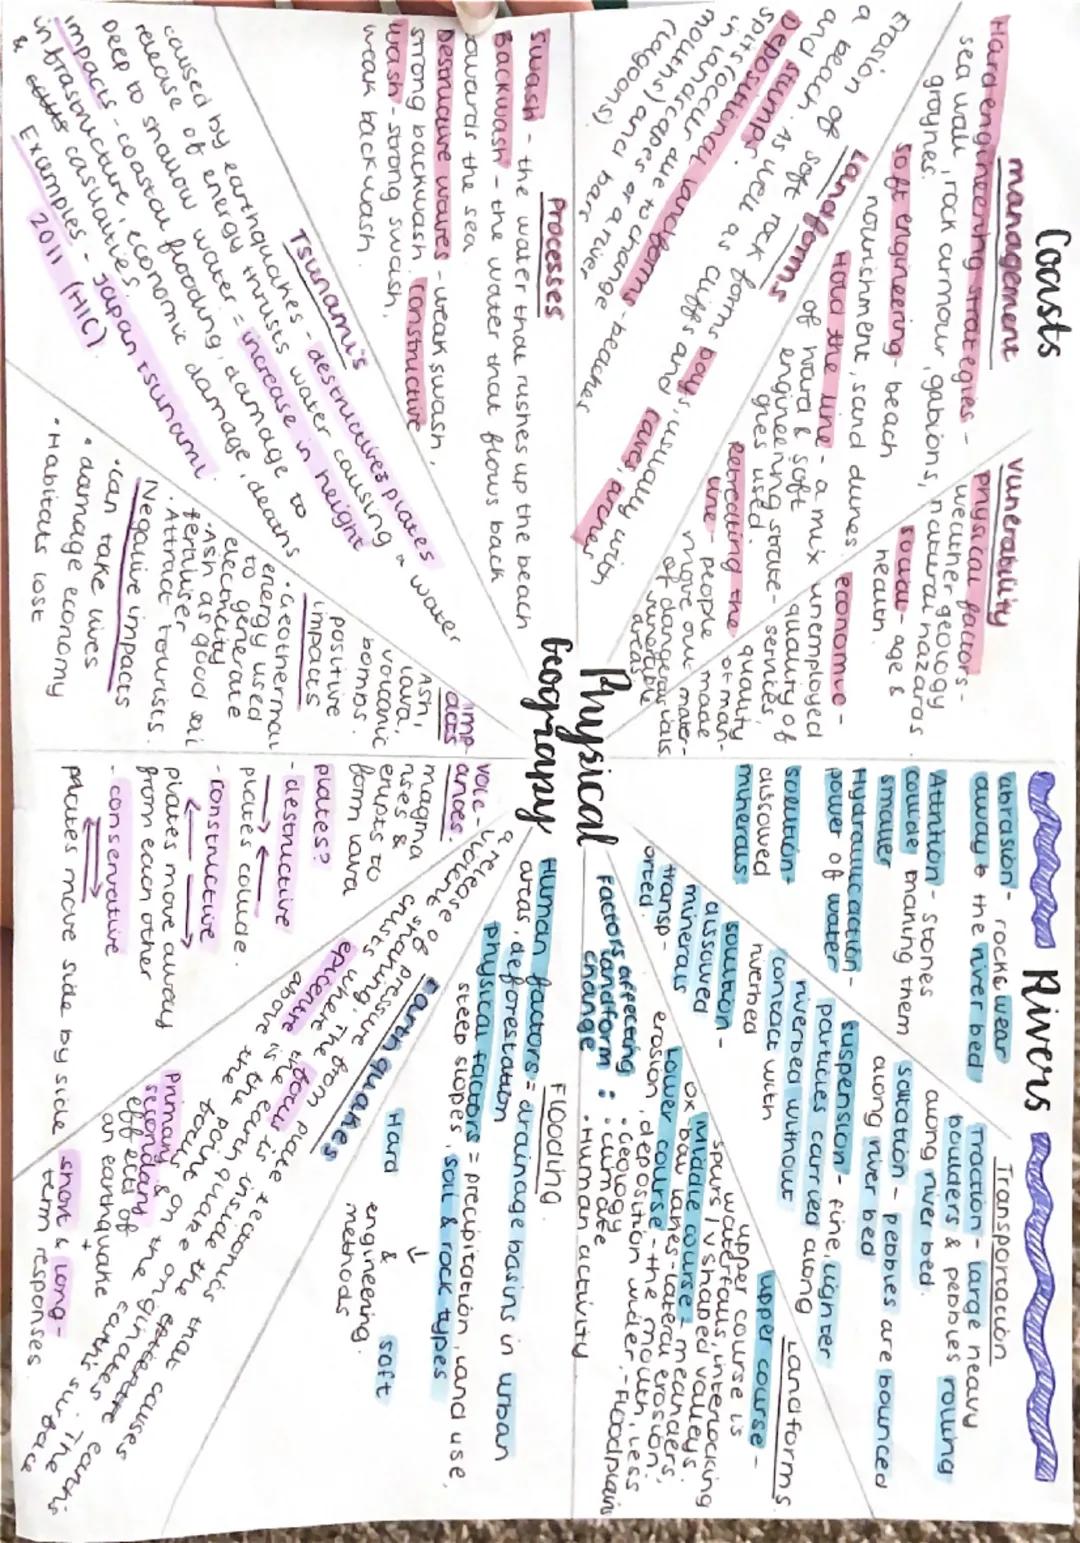 Coasts
management
Hard engineering strategies -
sea wall, rock armour, gabions,
groynes.
soft engineering - beach
nourishment, sand dunes.
Hold the line - a mix
of hard & soft
engineering strate-
gies used
Retreating the
line - people
move out
of dangerous
vunerable
areas
vunerability
physical factors -
weather, geology
natural hazards.
social - age &
health.
economic -
unemployed
quality of
services,
quality
of man-made
materials
Landforms
Erosion of soft rock forms bays, usually with
a beach. As well as cliffs and caves, arches
and stumps.
Depositional landforms - beaches
spits (occur due to change
in landscapes or a river
mouths) and bars
(lagoons)
Processes
swash - the water that rushes up the beach
Backwash - the water that flows back
towards the sea.
Destructive waves - weak swash,
strong backwash. Constructive
wash - strong swash,
weak backwash.
Tsunami's
caused by earthquakes - destructives plates
release of energy thrusts water causing a water
Deep to shallow water = increase in height
impacts - coastal flooding, damage to
infrastructure, economic damage, deaths
& casualities.
Examples - Japan tsunami
2011 (HIC)
impacts
Ash,
lava,
volcanic
bombs.
positive
impacts
• Geothermal
energy used
to generate
electricity
• Ash as good soil
fertiliser
• Attract tourists.
Negative impacts
• can take lives
• damage economy
• Habitats lost
Physical
Geograpy
Rivers
abrasion - rocks wear
away the river bed
Attrition - stones
collide making them
smaller
Hydraulic action -
power of water
solution -
dissolved
minerals
Transportation
Traction - large heavy
boulders & pebbles rolling
along river bed.
saltation - pebbles are bounced
along river bed
suspension - fine, lighter
particles carried along
riverbed without
contact with
riverbed
solution -
dissolved
minerals
transp-
orted.
Landforms
upper course -
upper course is
waterfalls, interlocking
spurs, v shaped valleys.
Middle course - meanders,
ox bow lakes - lateral erosion.
Lower course - the mouth, less
erosion, deposition wider, - Floodplain
Factors affecting
landform
change :
• Geology
• climate
• Human activity
Flooding.
Human factors = drainage basins in urban
areas, deforestation
physical factors = precipitation, land use,
steep slopes, soil & rock types
↓
Hard & soft
engineering
methods.
Earthquakes
a release of pressure from plate tectonic's that causes
violent shaking, the focus is inside the earths
crust, where the earthquake originates. The
epicentre is the point on the earth's surface
above the focus
Primary &
secondary
effects of
an earthquake
+
short & long -
term responses.
volc-
anoes.
magma
rises &
erupts to
form lava
plates?
- destructive
plates collide.
- constructive
plates move away
from each other
- conservative
plates move side by side